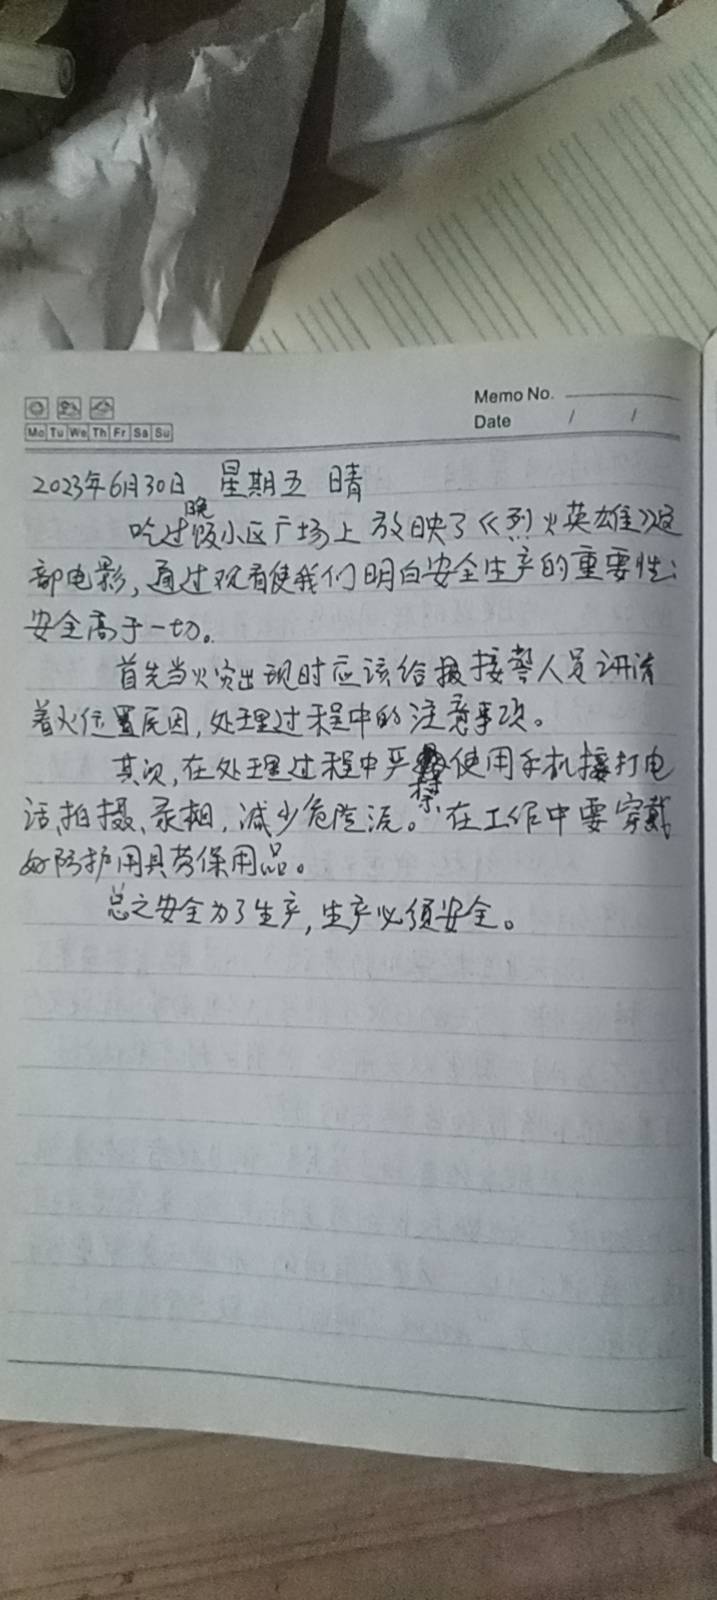 Memo No.
Date / /
Mo Tu We Th Fr Sa Su
2023年6月30日 星期五 晴
吃过晚饭小区广场上放映了《烈火英雄》这
部电影,通过观看使我们明白安全生产的重要性:
安全高于一切。
首先当火灾出现时应该给接警人员讲清
着火位置原因,处理过程中的注意事项。
其次,在处理过程中严禁使用手机接打电
话、拍摄、录相,减少危险源。在工作中要穿戴
好防护用具劳保用品。
总之安全为了生产,生产必须安全。